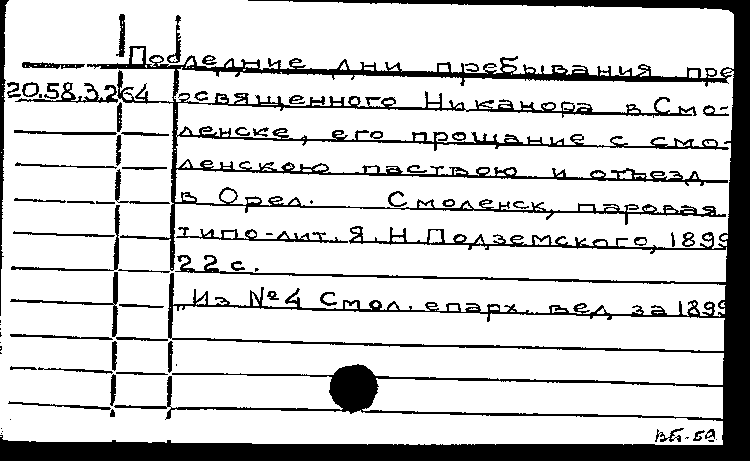 Последние дни пребывания пре
20.58.3.264 освященного Никанора в Смо-
ленске, его прощание с смо-
ленскою паствою и отъезд
в Орел. Смоленск, паровая
типо-лит. Я.Н.Подземского, 1899
22 с.
„Из №4 Смол. епарх. вед за 1899
ВБ-59